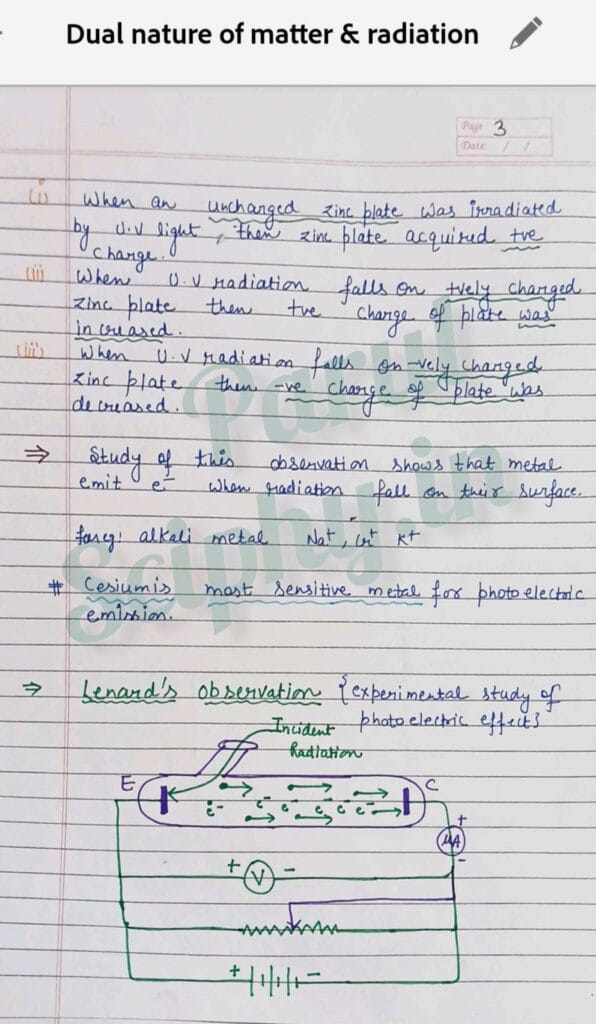 Dual nature of matter & radiation
Page 3
Date / /
(i) When an unchanged zinc plate was irradiated
by U.V light, then zinc plate acquired +ve
charge.
(ii) When U.V radiation falls on +vely charged
zinc plate then +ve charge of plate was
increased.
(iii) When U.V radiation falls on -vely charged
zinc plate then -ve charge of plate was
decreased.
⇒ Study of this observation shows that metal
emit e⁻ when radiation fall on their surface.
alkali metal Na⁺, K⁺
# Cesium is most sensitive metal for photoelectric
emission.
⇒ Lenard's observation {experimental study of
photoelectric effect}
Incident
Radiation
E
C
e⁻ e⁻ e⁻ e⁻ e⁻ e⁻
+
μA
-
+ V -
+ -
Parul
Sciphy.in